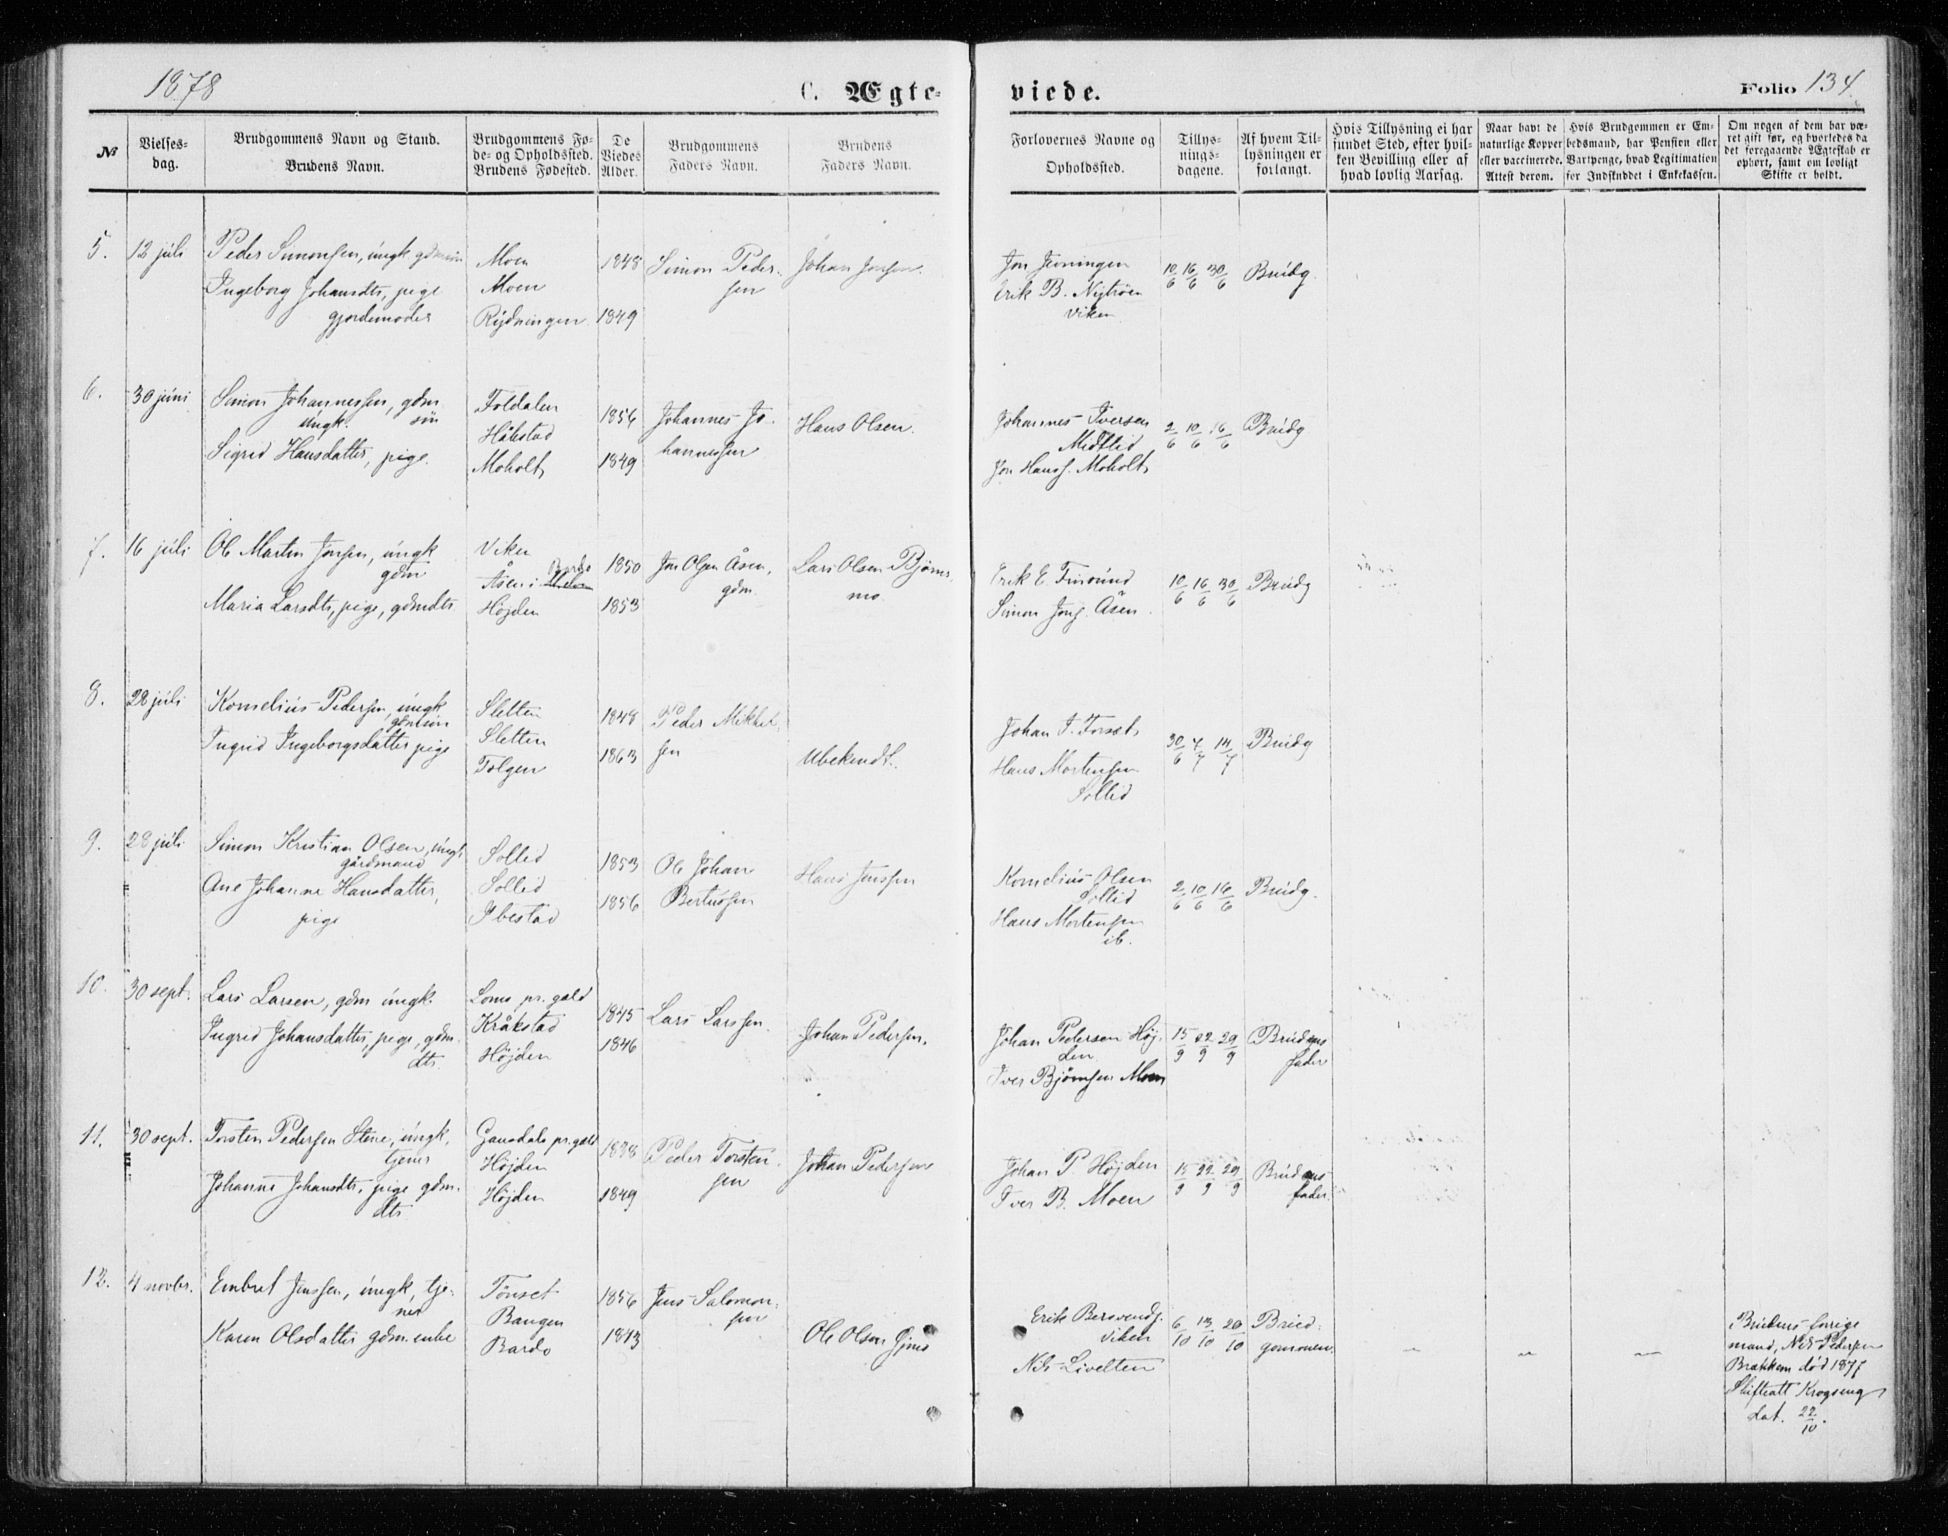 1878
C. Ægte-
viede.
Folio 134.
№
Vielses-
dag.
Brudgommens Navn og Stand.
Brudens Navn.
Brudgommens Fø-
de- og Opholdssted.
Brudens Fødested.
De
Viedes
Alder.
Brudgommens
Faders Navn.
Brudens
Faders Navn.
Forlovernes Navne og
Opholdssted.
Tillys-
nings-
dagene.
Af hvem Til-
lysningen er
forlangt.
Hvis Tillysning ei har
fundet Sted, efter hvil-
ken Bevilling eller af
hvad lovlig Aarsag.
Naar havt de
naturlige Kopper
eller vaccinerede.
Attest derom.
Hvis Brudgommen er Em-
bedsmand, har Pension eller
Vartpenge, hvad Legitimation
for Indskuddet i Enkekassen.
Om nogen af dem har væ-
ret gift før, og hvorledes da
det foregaaende Ægteskab er
ophørt, samt om lovligt
Skifte er holdt.
5.
12 júli
Peder Simonsen, úngk. gdmsön
Ingeborg Johansdtr, pige
gjordemoder
Moen
Moen
Rýdningen
1848
1849
Simon Peder-
sen
Johan Jonsen.
Jon
Erik B. Nýtröen
Viken
10/6 16/6 30/6
Brúdg.
6.
30 júni
Simon Johannessen, gdm
úngk. sön
Sigrid Hansdatter, pige.
Foldalen
Håkstad
Moholt
1856
1849
Johannes Jo-
hannessen
Hans Olsen.
Johannes Iversen
Midtlid
Jon Hanss. Moholt
2/6 10/6 16/6
Brúdg
7.
16 júli
Ole Martin Jonsen, úngk
gdm
Maria Larsdtr, pige, gdmdtr
Viken
Åsen i Bardo
Höjden
1850
1853
Jon Olsen Åsen,
gdm.
Lars Olsen Björns
mo
Erik E. Finsúnd
Simon Jons. Åsen.
10/6 16/6 30/6
Brúdg
8.
28 júli
Kornelius Pedersen, úngk
gdmsön
Ingrid Ingeborgsdatter pige
Sletten
Sletten
Tolgen
1848
1863
Peder Mikkel-
sen
Ubekendt.
Johan P. Forset
Hans Mortensen
Sollid
30/6 7/7 14/7
Brúdg
9.
28 júli
Simon Kristian Olsen, úngk
gårdmand
Ane Johanne Hansdatter,
pige
Sollid
Sollid
Ibestad
1853
1856
Ole Johan
Bertussen
Hans Jenssen
Kornelius Olsen
Sollid
Hans Mortensen
ib.
2/6 10/6 16/6
Brúdg.
10.
30 sept.
Lars Larsen, gdm úngk.
Ingrid Johansdatter, pige, gdm.
dtr.
Loms pr. gæld
Kråkstad
Höjden
1845
1846
Lars Larssen.
Johan Pedersen.
Johan Pedersen Höj-
den
Iver Björnsen Moen
15/9 22/9 29/9
Brúdens
fader
11.
30 sept.
Torsten Pedersen Stene, úngk,
tjener
Johanne Johansdtr, pige gdm.
dtr
Gausdals pr. gæld
Höjden
Höjden
1838
1849
Peder Torsten-
sen
Johan Pedersen
Johan P. Höjden
Iver B. Moen
15/9 22/9 29/9
Brúdens
fader
12.
4 novbr.
Embret Jenssen, úngk, tje-
ner
Karen Olsdatter gdm. enke
Tönset
Bangen
Bardo
1856
1843
Jens Salomon-
sen
Ole Olsen
Erik Bersvends.
Viken
Nils Livelten
6/10 13/10 20/10
Brúd-
gommen
Brúdens forrige
mand, Nils Pedersen
Brækkem död 1877
Skifteatt Krogseng
dat. 22/10.